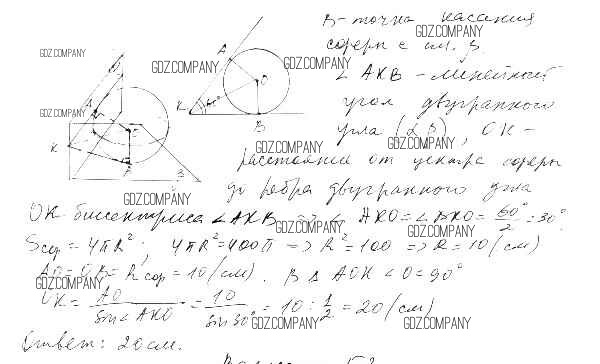 В - точка касания
сферы с пл. β
∠AKB - линейный
угол двугранного
угла (αβ), OK -
расстояние от центра сферы
до ребра двугранного угла
OK биссектриса ∠AKB => ∠AKO = ∠BKO = 60°/2 = 30°.
Sсф = 4πR²; 4πR² = 400π => R² = 100 => R = 10 (см)
AO = OB = Rсф = 10 (см). В Δ AOK ∠O = 90°
OK = AO/sin∠AKO = 10/sin30° = 10 : 1/2 = 20 (см)
Ответ: 20 см.
GDZ.COMPANY
GDZ.COMPANY
GDZ.COMPANY
GDZ.COMPANY
GDZ.COMPANY
GDZ.COMPANY
GDZ.COMPANY
GDZ.COMPANY
GDZ.COMPANY
GDZ.COMPANY
GDZ.COMPANY
GDZ.COMPANY
GDZ.COMPANY